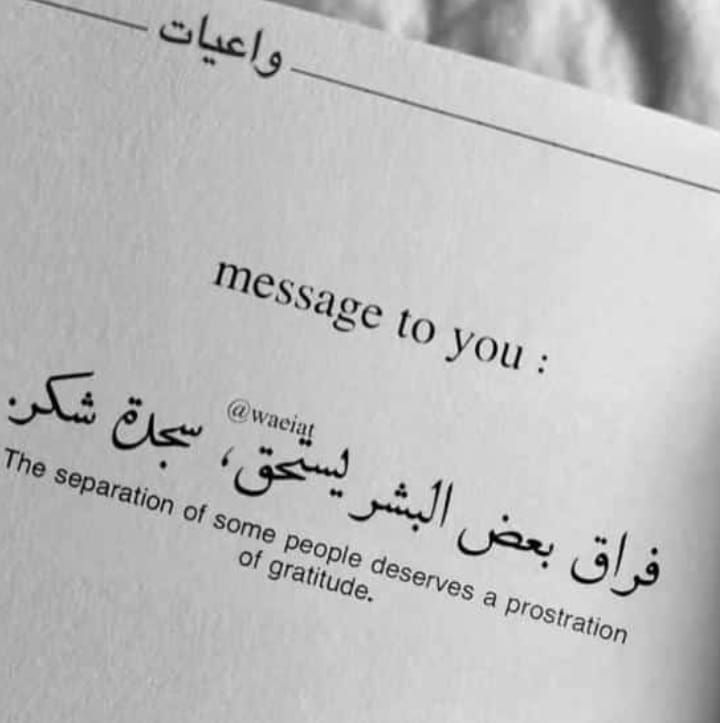 واعيات
message to you :
@waeiat
فراق بعض البشر ليستحق، سجدة شكر.
The separation of some people deserves a prostration
of gratitude.